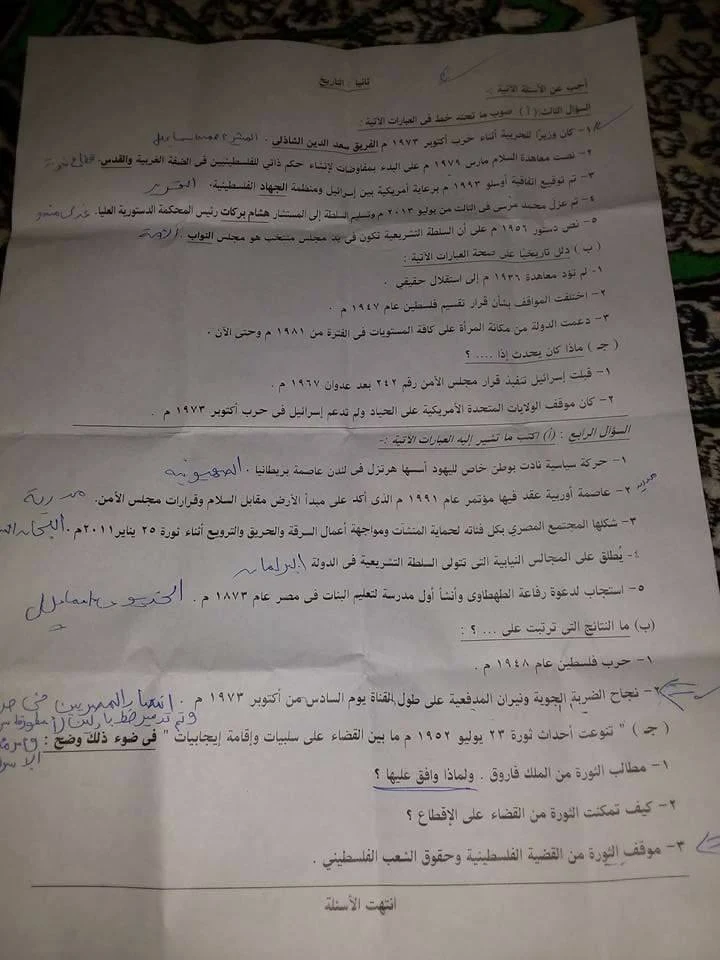 ثانيا : التاريخ
أجب عن الأسئلة الآتية :
السؤال الثالث: ( أ ) صوب ما تحته خط فى العبارات الآتية :
١- كان وزيرًا للحربية أثناء حرب أكتوبر ١٩٧٣ م الفريق سعد الدين الشاذلي . المشير
٢- نصت معاهدة السلام مارس ١٩٧٩ م على البدء بمفاوضات لإنشاء حكم ذاتي للفلسطينيين فى الضفة الغربية والقدس. قطاع غزة
٣- تم توقيع اتفاقية أوسلو ١٩٩٣ م برعاية أمريكية بين إسرائيل ومنظمة الجهاد الفلسطينية. التحرير
٤- تم عزل محمد مرسى فى الثالث من يوليو ٢٠١٣ م وتسليم السلطة إلى المستشار هشام بركات رئيس المحكمة الدستورية العليا. عدلى منصو
٥- نص دستور ١٩٥٦ م على أن السلطة التشريعية تكون فى يد مجلس منتخب هو مجلس النواب . الأمة
( ب ) دلل تاريخيا على صحة العبارات الآتية :
١- لم تؤد معاهدة ١٩٣٦ م إلى استقلال حقيقي .
٢- اختلفت المواقف بشأن قرار تقسيم فلسطين عام ١٩٤٧ م .
٣- دعمت الدولة من مكانة المرأة على كافة المستويات فى الفترة من ١٩٨١ م وحتى الآن .
( جـ ) ماذا كان يحدث إذا .... ؟
١- قبلت إسرائيل تنفيذ قرار مجلس الأمن رقم ٢٤٢ بعد عدوان ١٩٦٧ م .
٢- كان موقف الولايات المتحدة الأمريكية على الحياد ولم تدعم إسرائيل فى حرب أكتوبر ١٩٧٣ م .
السؤال الرابع : ( أ ) اكتب ما تشير إليه العبارات الآتية :-
١- حركة سياسية نادت بوطن خاص لليهود أسسها هرتزل فى لندن عاصمة بريطانيا . الصهيونية
٢- عاصمة أوربية عقد فيها مؤتمر عام ١٩٩١ م الذى أكد على مبدأ الأرض مقابل السلام وقرارات مجلس الأمن. مدريد
٣- شكلها المجتمع المصري بكل فئاته لحماية المنشآت ومواجهة أعمال السرقة والحريق والترويع أثناء ثورة ٢٥ يناير ٢٠١١م . اللجان
٤- يُطلق على المجالس النيابية التى تتولى السلطة التشريعية فى الدولة البرلمان
٥- استجاب لدعوة رفاعة الطهطاوى وأنشأ أول مدرسة لتعليم البنات فى مصر عام ١٨٧٣ م . الخديوى اسماعيل
(ب) ما النتائج التى ترتبت على ... ؟ :
١- حرب فلسطين عام ١٩٤٨ م .
٢- نجاح الضربة الجوية ونيران المدفعية على طول القناة يوم السادس من أكتوبر ١٩٧٣ م . انتصار المصريين فى
وتم تدمير خط بارليف
( جـ ) " تنوعت أحداث ثورة ٢٣ يوليو ١٩٥٢ م ما بين القضاء على سلبيات وإقامة إيجابيات " فى ضوء ذلك وضح :
١- مطالب الثورة من الملك فاروق . ولماذا وافق عليها ؟
٢- كيف تمكنت الثورة من القضاء على الإقطاع ؟
٣- موقف الثورة من القضية الفلسطينية وحقوق الشعب الفلسطيني .
انتهت الأسئلة